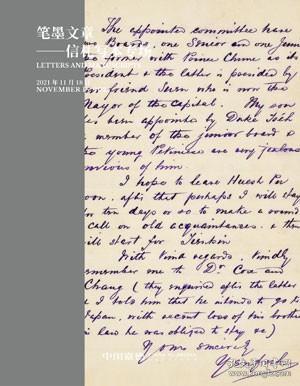 笔墨文章
——信札
LETTERS AND
2021年11月18
NOVEMBER
The appointed committee have
Boards, one Senior and one Juni
former with Prince Chune as its
resident & the latter is presided by
friend Seen who is now the
Mayor of the Capital. My son
been appointed by Duke Tsêh
a member of the junior board &
young Pekinese are very jealous
envious of him
I hope to leave Hueih
soon, after that perhaps I will stay
ten days or so to make a round
call on old acquaintances. & then
will start for Tientsin
With kind regards. Kindly
remember me to Dr. Cox and
Chang (they enquired after the latter
& I told him that he intended to go to
Japan, with recent loss of his brother
in law he was obliged to stay on)
Yours sincerely
中国嘉德